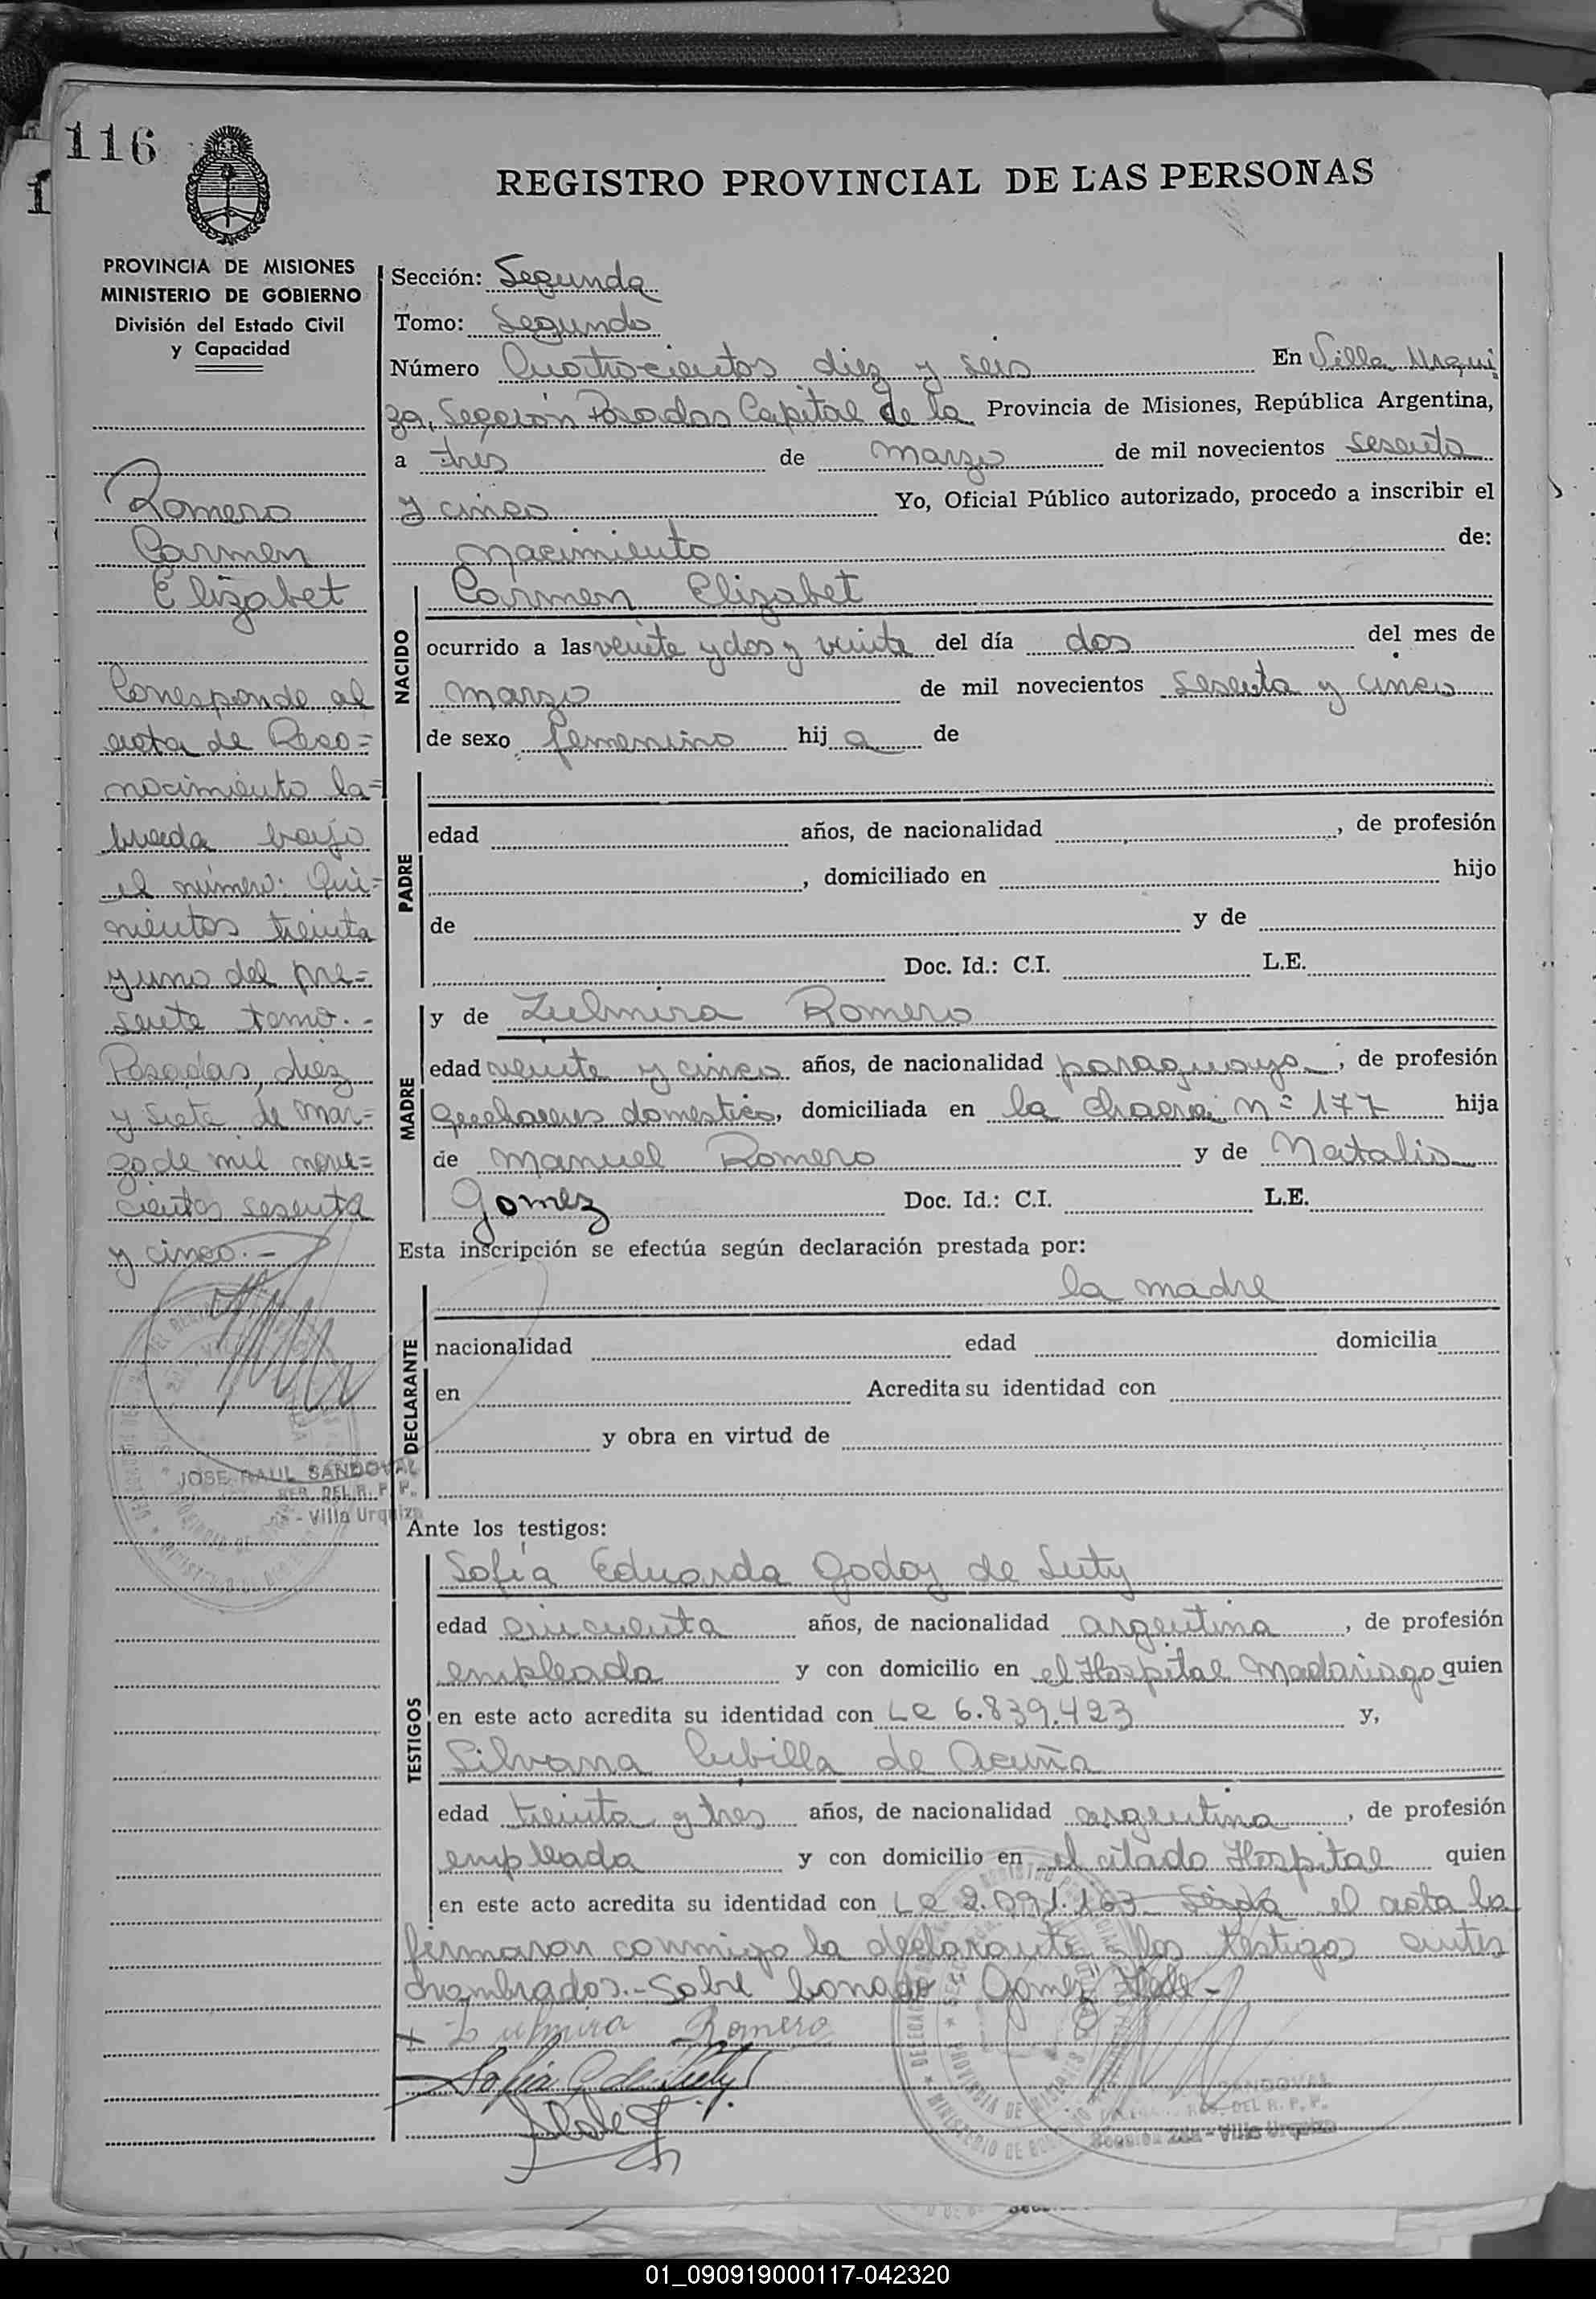 116
REGISTRO PROVINCIAL DE LAS PERSONAS
PROVINCIA DE MISIONES
MINISTERIO DE GOBIERNO
División del Estado Civil
y Capacidad
Romero
Carmen
Elizabet
Corresponde al
acta de Reco=
nocimiento la=
brada bajo
el número: Qui=
nientos treinta
y uno del pre=
sente tomo.-
Posadas, diez
y siete de Mar=
zo de mil nove=
cientos sesenta
y cinco.-
JOSE RAUL SANDOVAL
DEL R. P. P.
- Villa Urquiza
Sección: Segunda
Tomo: Segundo
Número Cuatrocientos diez y seis En Villa Urqui
za, Sección Posadas Capital de la Provincia de Misiones, República Argentina,
a tres de marzo de mil novecientos sesenta
y cinco Yo, Oficial Público autorizado, procedo a inscribir el
nacimiento de:
NACIDO
Carmen Elizabet
ocurrido a las veinte y dos y veinte del día dos del mes de
marzo de mil novecientos sesenta y cinco
de sexo femenino hij a de
PADRE
edad años, de nacionalidad , de profesión
, domiciliado en hijo
de y de
Doc. Id.: C.I. L.E.
MADRE
y de Zulmira Romero
edad veinte y cinco años, de nacionalidad paraguaya, de profesión
quehaceres domestico, domiciliada en la chacra nº 177 hija
de Manuel Romero y de Natalia
Gomez Doc. Id.: C.I. L.E.
Esta inscripción se efectúa según declaración prestada por:
DECLARANTE
la madre
nacionalidad edad domicilia
en Acredita su identidad con
y obra en virtud de
Ante los testigos:
TESTIGOS
Sofía Eduarda Godoy de Suty
edad cincuenta años, de nacionalidad argentina, de profesión
empleada y con domicilio en el Hospital Madariaga quien
en este acto acredita su identidad con LC 6.839.423 y,
Silvana Cubilla de Acuña
edad treinta y tres años, de nacionalidad argentina, de profesión
empleada y con domicilio en el citado Hospital quien
en este acto acredita su identidad con LC 2.091.163 Leida el acta la
firmaron conmigo la declarante los testigos antes
nombrados.- Sobre borrado: Gomez Vale-
Zulmira Romero
Sofia G de Suty
SANDOVAL
DEL R. P. P.
Sección 2da - Villa Urquiza
01_090919000117-042320